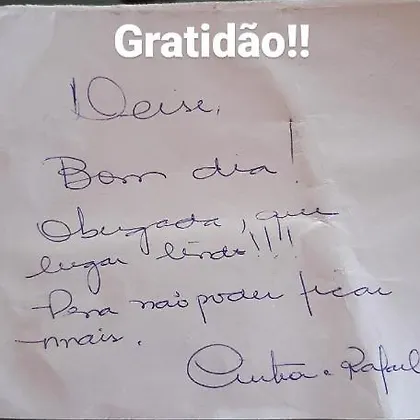 Gratidão!!
Deise,
Bom dia!
Obrigada, que
lugar lindo!!!!
Pena não poder ficar
mais.
Cintia e Rafael